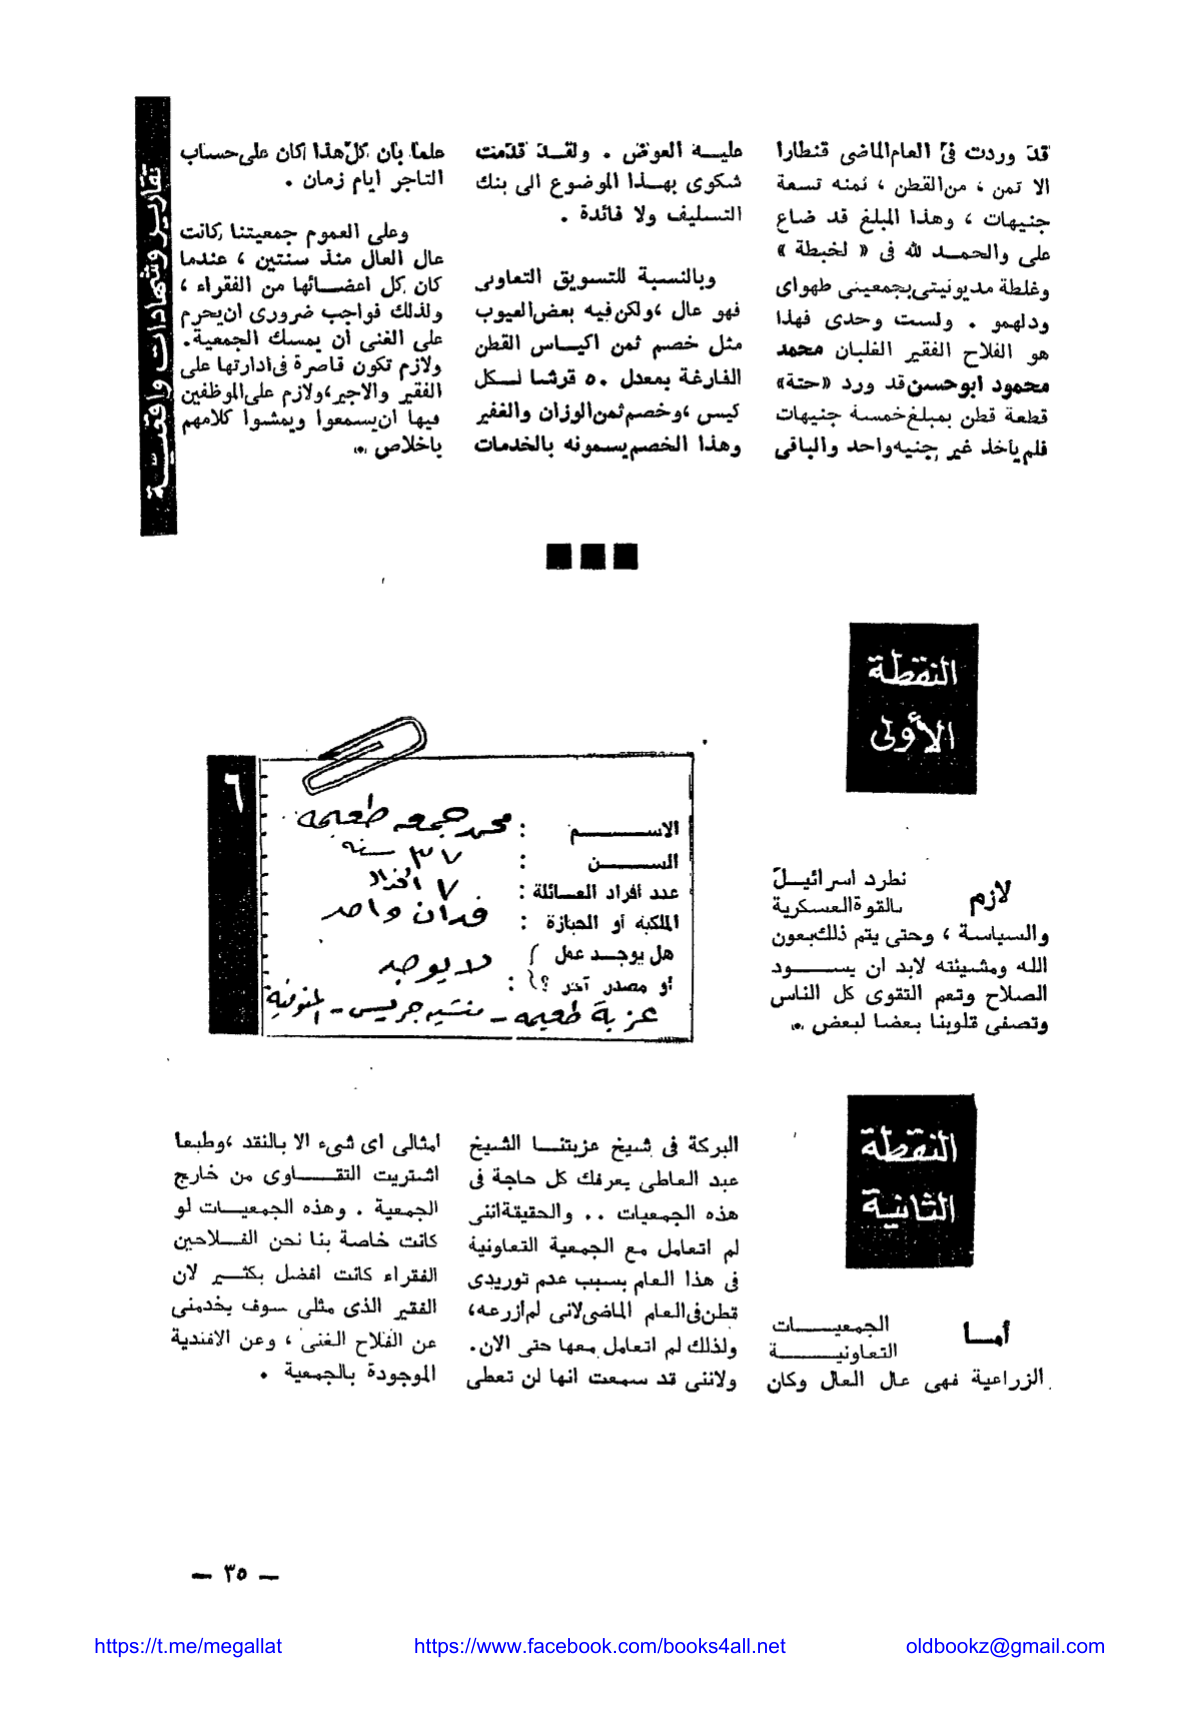 تقارير وشهادات واقعية
قد وردت فى العام الماضى قنطارا
الا تمن ، من القطن ، ثمنه تسعة
جنيهات ، وهذا المبلغ قد ضاع
على والحمد لله فى « لخبطة »
وغلطة مديونيتى بجمعيتى طهواى
ودلهمو . ولست وحدى فهذا
هو الفلاح الفقير الغلبان محمد
محمود ابو حسن قد ورد «حتة»
قطعة قطن بمبلغ خمسة جنيهات
فلم يأخذ غير جنيه واحد والباقى
عليه العوض . ولقد قدمت
شكوى بهذا الموضوع الى بنك
التسليف ولا فائدة .
وبالنسبة للتسويق التعاونى
فهو عال ، ولكن فيه بعض العيوب
مثل خصم ثمن اكياس القطن
الفارغة بمعدل ٥٠ قرشا لكل
كيس ، وخصم ثمن الوزان والغفير
وهذا الخصم يسمونه بالخدمات
علما بأن كل هذا كان على حساب
التاجر ايام زمان .
وعلى العموم جمعيتنا كانت
عال العال منذ سنتين ، عندما
كان كل اعضائها من الفقراء ،
ولذلك فواجب ضرورى ان يحرم
على الغنى أن يمسك الجمعية.
ولازم تكون قاصرة فى ادارتها على
الفقير والاجير، ولازم على الموظفين
فيها ان يسمعوا ويمشوا كلامهم
باخلاص .
النقطة
الأولى
٦
الاسم : محمد جمعه طعيمه
السن : ٣٧ سنه
عدد أفراد العائلة : ٧ افراد
الملكية أو الحيازة : فدان واحد
هل يوجد عمل
أو مصدر آخر ؟ : لا يوجد
عزبة طعيمه - منشية جريس - المنوفية
لازم نطرد اسرائيل
بالقوة العسكرية
والسياسة ، وحتى يتم ذلك بعون
الله ومشيئته لابد ان يسود
الصلاح وتعم التقوى كل الناس
وتصفى قلوبنا بعضا لبعض .
النقطة
الثانية
أما الجمعيات
التعاونية
الزراعية فهى عال العال وكان
البركة فى شيخ عزبتنا الشيخ
عبد العاطى يعرفك كل حاجة فى
هذه الجمعيات . . والحقيقة اننى
لم اتعامل مع الجمعية التعاونية
فى هذا العام بسبب عدم توريدى
قطن فى العام الماضى لانى لم ازرعه،
ولذلك لم اتعامل معها حتى الان.
ولاننى قد سمعت انها لن تعطى
امثالى اى شىء الا بالنقد ، وطبعا
اشتريت التقاوى من خارج
الجمعية . وهذه الجمعيات لو
كانت خاصة بنا نحن الفلاحين
الفقراء كانت افضل بكثير لان
الفقير الذى مثلى سوف يخدمنى
عن الفلاح الغنى ، وعن الافندية
الموجودة بالجمعية .
— ٣٥ —
https://t.me/megallat
https://www.facebook.com/books4all.net
oldbookz@gmail.com